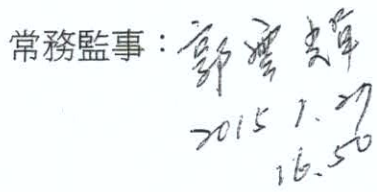 常務監事：郭雲輝
2015 1.27
16.50